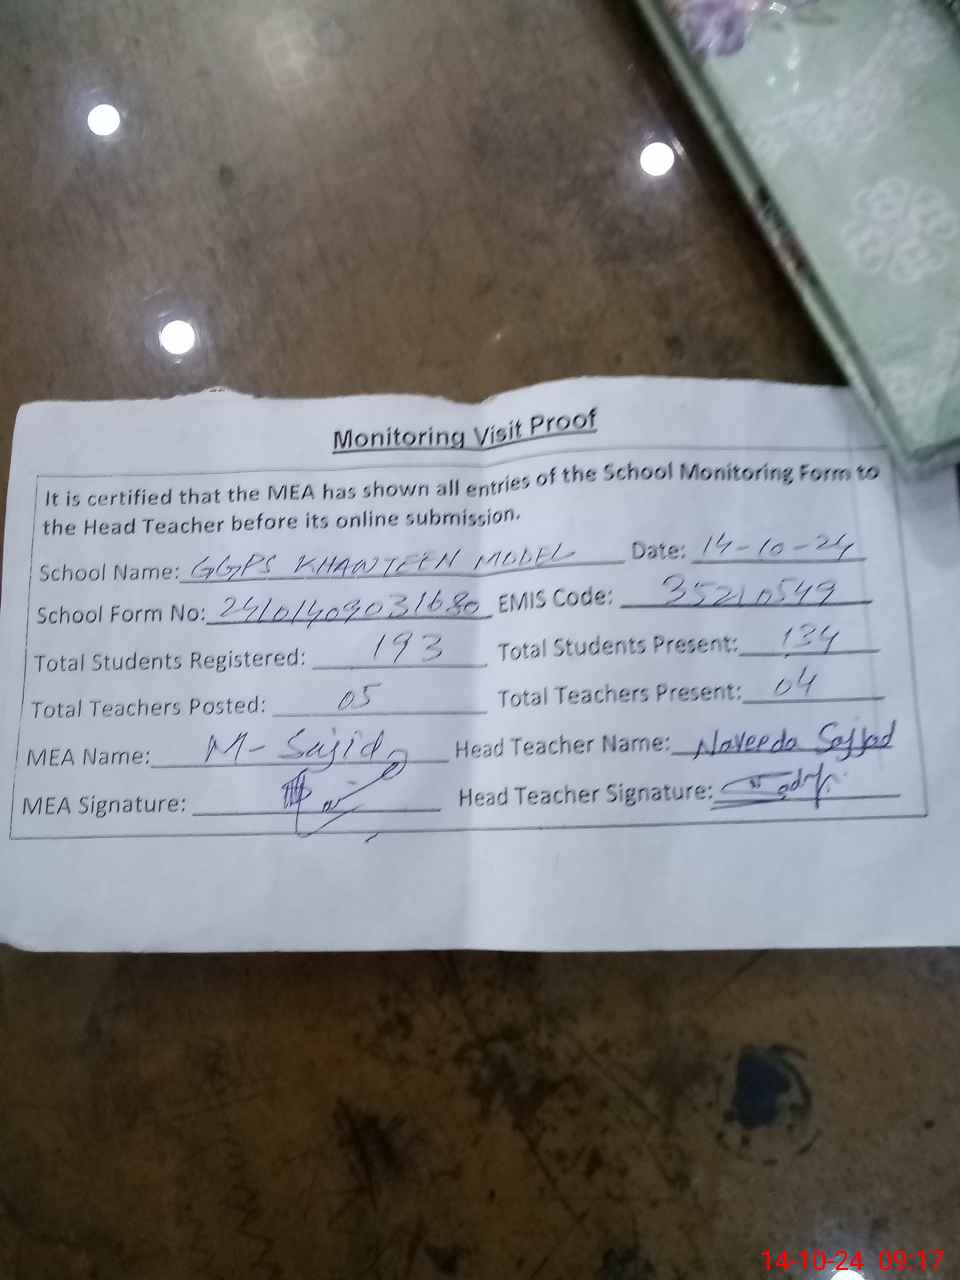 Monitoring Visit Proof
It is certified that the MEA has shown all entries of the School Monitoring Form to
the Head Teacher before its online submission.
School Name: GGPS KHAWTEEN MODEL Date: 14-10-24
School Form No: 24101409031680 EMIS Code: 35210549
Total Students Registered: 193 Total Students Present: 134
Total Teachers Posted: 05 Total Teachers Present: 04
MEA Name: M- Sajid Head Teacher Name: Naveeda Sajjad
MEA Signature: Head Teacher Signature:
14-10-24 09:17